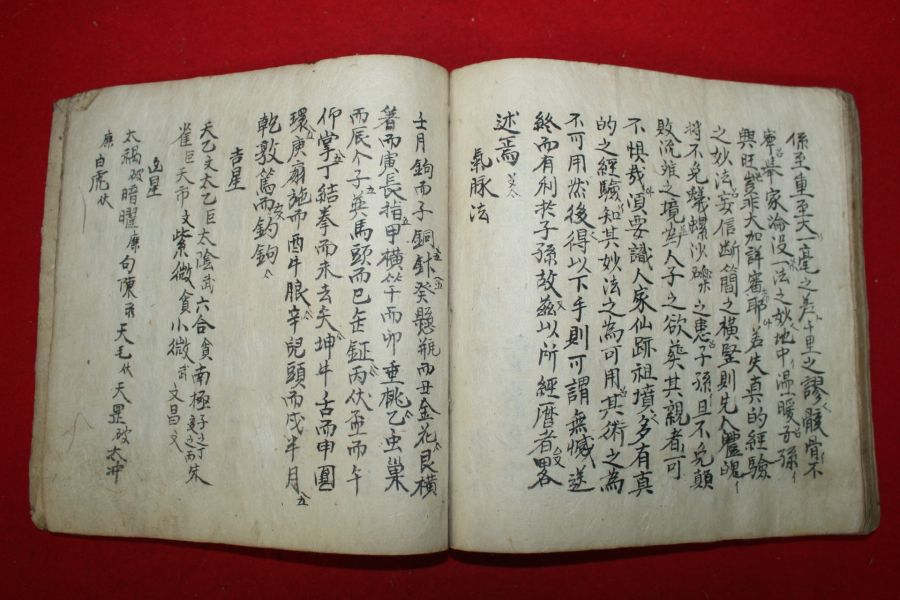 係至重至大一毫之差千里之謬骸骨不
寧擧家淪没一法之妙地中温暖子孫
興旺豈非大加詳審耶若失真的經驗
之妙法妄信斷簡之橫竪則先人體魄
將不免蟻螺沙礫之患子孫且不免顛
敗流離之境爲人子之欲葬其親者可
不惧哉須要識人家仙跡祖墳多有真
的之經驗知其妙法之為可用其術之為
不可用然後得以下手則可謂無憾送
終而有利於子孫故玆以所經曆者畧
述焉
氣脉法
壬月鉤而子銅針癸懸瓶而丑金花艮橫
箸而寅長指甲橫竿而卯垂桃乙虫巢
而辰个子巽馬頭而巳缶鉦丙伏盃而午
仰掌丁結拳而未去矣坤牛舌而申圓
環庚扇施而酉牛腺辛兒頭而戌半月
乾敦篤而亥鉤鉤
吉星
天乙文太乙巨太陰武六合貪南極子之丁
朱
雀巨天市文紫微貪小微武文昌文
凶星
太禍破暗曜廉句陳天毛伏天罡破太冲
廉白虎伏